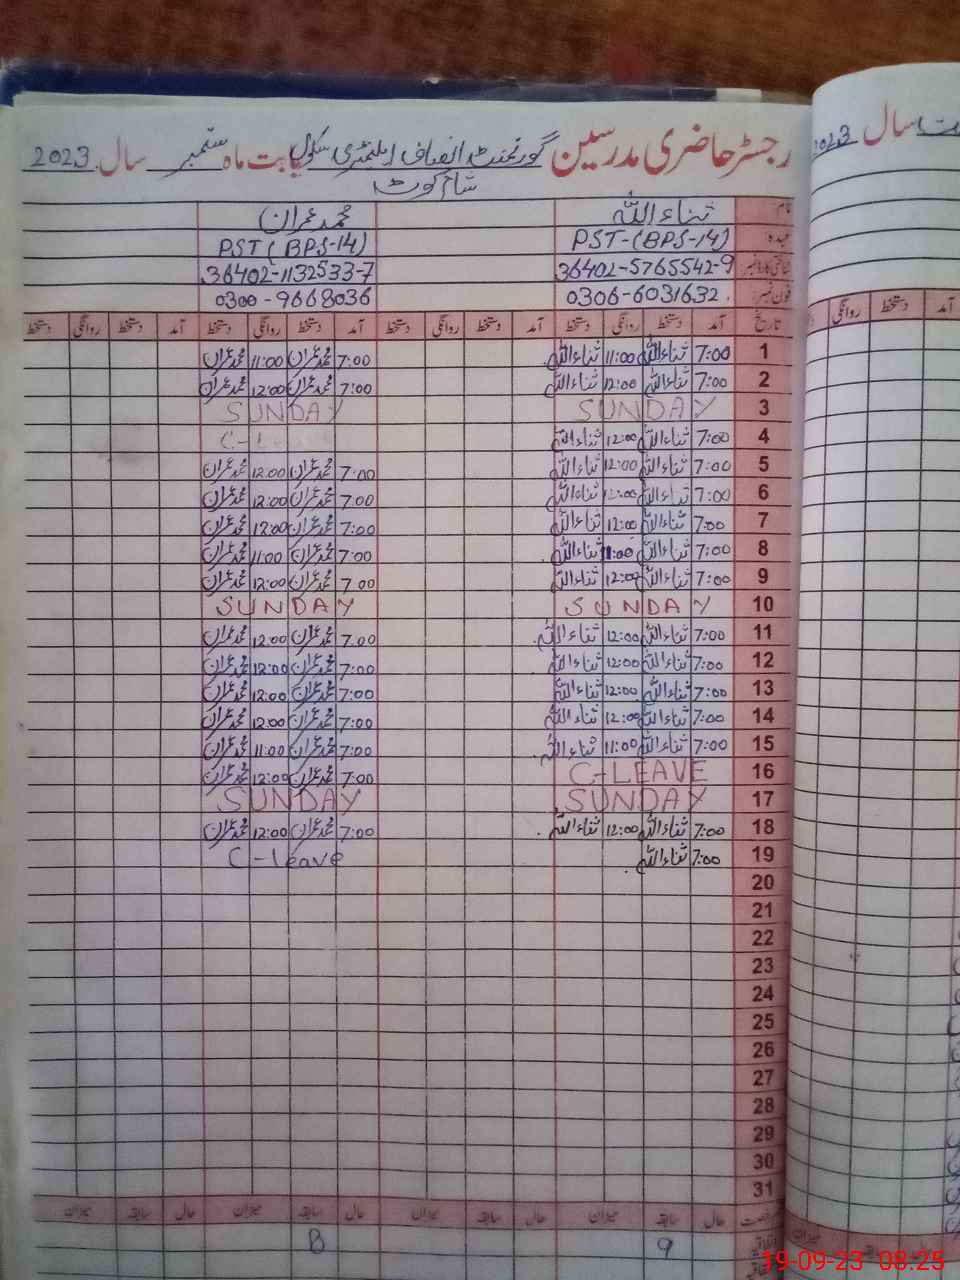 رجسٹر حاضری مدرسین گورنمنٹ انصاف ایلیمنٹری سکول بابت ماہ ستمبر سال 2023
شام کوٹ
سال 2023
نام ثناء اللہ محمد عمران
عہدہ PST-(BPS-14) PST(BPS-14)
شناختی کارڈ نمبر 36402-5765542-9 36402-1132533-7
فون نمبر 0306-6031632. 0300-9668036
تاریخ آمد دستخط روانگی دستخط آمد دستخط روانگی دستخط آمد دستخط روانگی دستخط آمد دستخط روانگی دستخط
1 7:00 ثناء اللہ 11:00 ثناء اللہ 7:00 محمد عمران 11:00 محمد عمران
2 7:00 ثناء اللہ 12:00 ثناء اللہ 7:00 محمد عمران 12:00 محمد عمران
3 SUNDAY SUNDAY
4 7:00 ثناء اللہ 12:00 ثناء اللہ
5 7:00 ثناء اللہ 12:00 ثناء اللہ 7:00 محمد عمران 12:00 محمد عمران
6 7:00 ثناء اللہ 12:00 ثناء اللہ 7.00 محمد عمران 12:00 محمد عمران
7 7:00 ثناء اللہ 12:00 ثناء اللہ 7:00 محمد عمران 12:00 محمد عمران
8 7:00 ثناء اللہ 11:00 ثناء اللہ 7:00 محمد عمران 11:00 محمد عمران
9 7:00 ثناء اللہ 12:00 ثناء اللہ 7.00 محمد عمران 12:00 محمد عمران
10 SUNDAY SUNDAY
11 7:00 ثناء اللہ 12:00 ثناء اللہ 7.00 محمد عمران 12:00 محمد عمران
12 7:00 ثناء اللہ 12:00 ثناء اللہ 7:00 محمد عمران 12:00 محمد عمران
13 7:00 ثناء اللہ 12:00 ثناء اللہ 7:00 محمد عمران 12:00 محمد عمران
14 7:00 ثناء اللہ 12:00 ثناء اللہ 7:00 محمد عمران 12:00 محمد عمران
15 7:00 ثناء اللہ 11:00 ثناء اللہ 7:00 محمد عمران 11:00 محمد عمران
16 C-LEAVE 7:00 محمد عمران 12:00 محمد عمران
17 SUNDAY SUNDAY
18 7:00 ثناء اللہ 12:00 ثناء اللہ 7:00 محمد عمران 12:00 محمد عمران
19 7:00 ثناء اللہ C-leave
20
21
22
23
24
25
26
27
28
29
30
31
حال سابقہ میزان حال سابقہ میزان حال سابقہ میزان حال سابقہ میزان
9 8
19-09-23 08:25